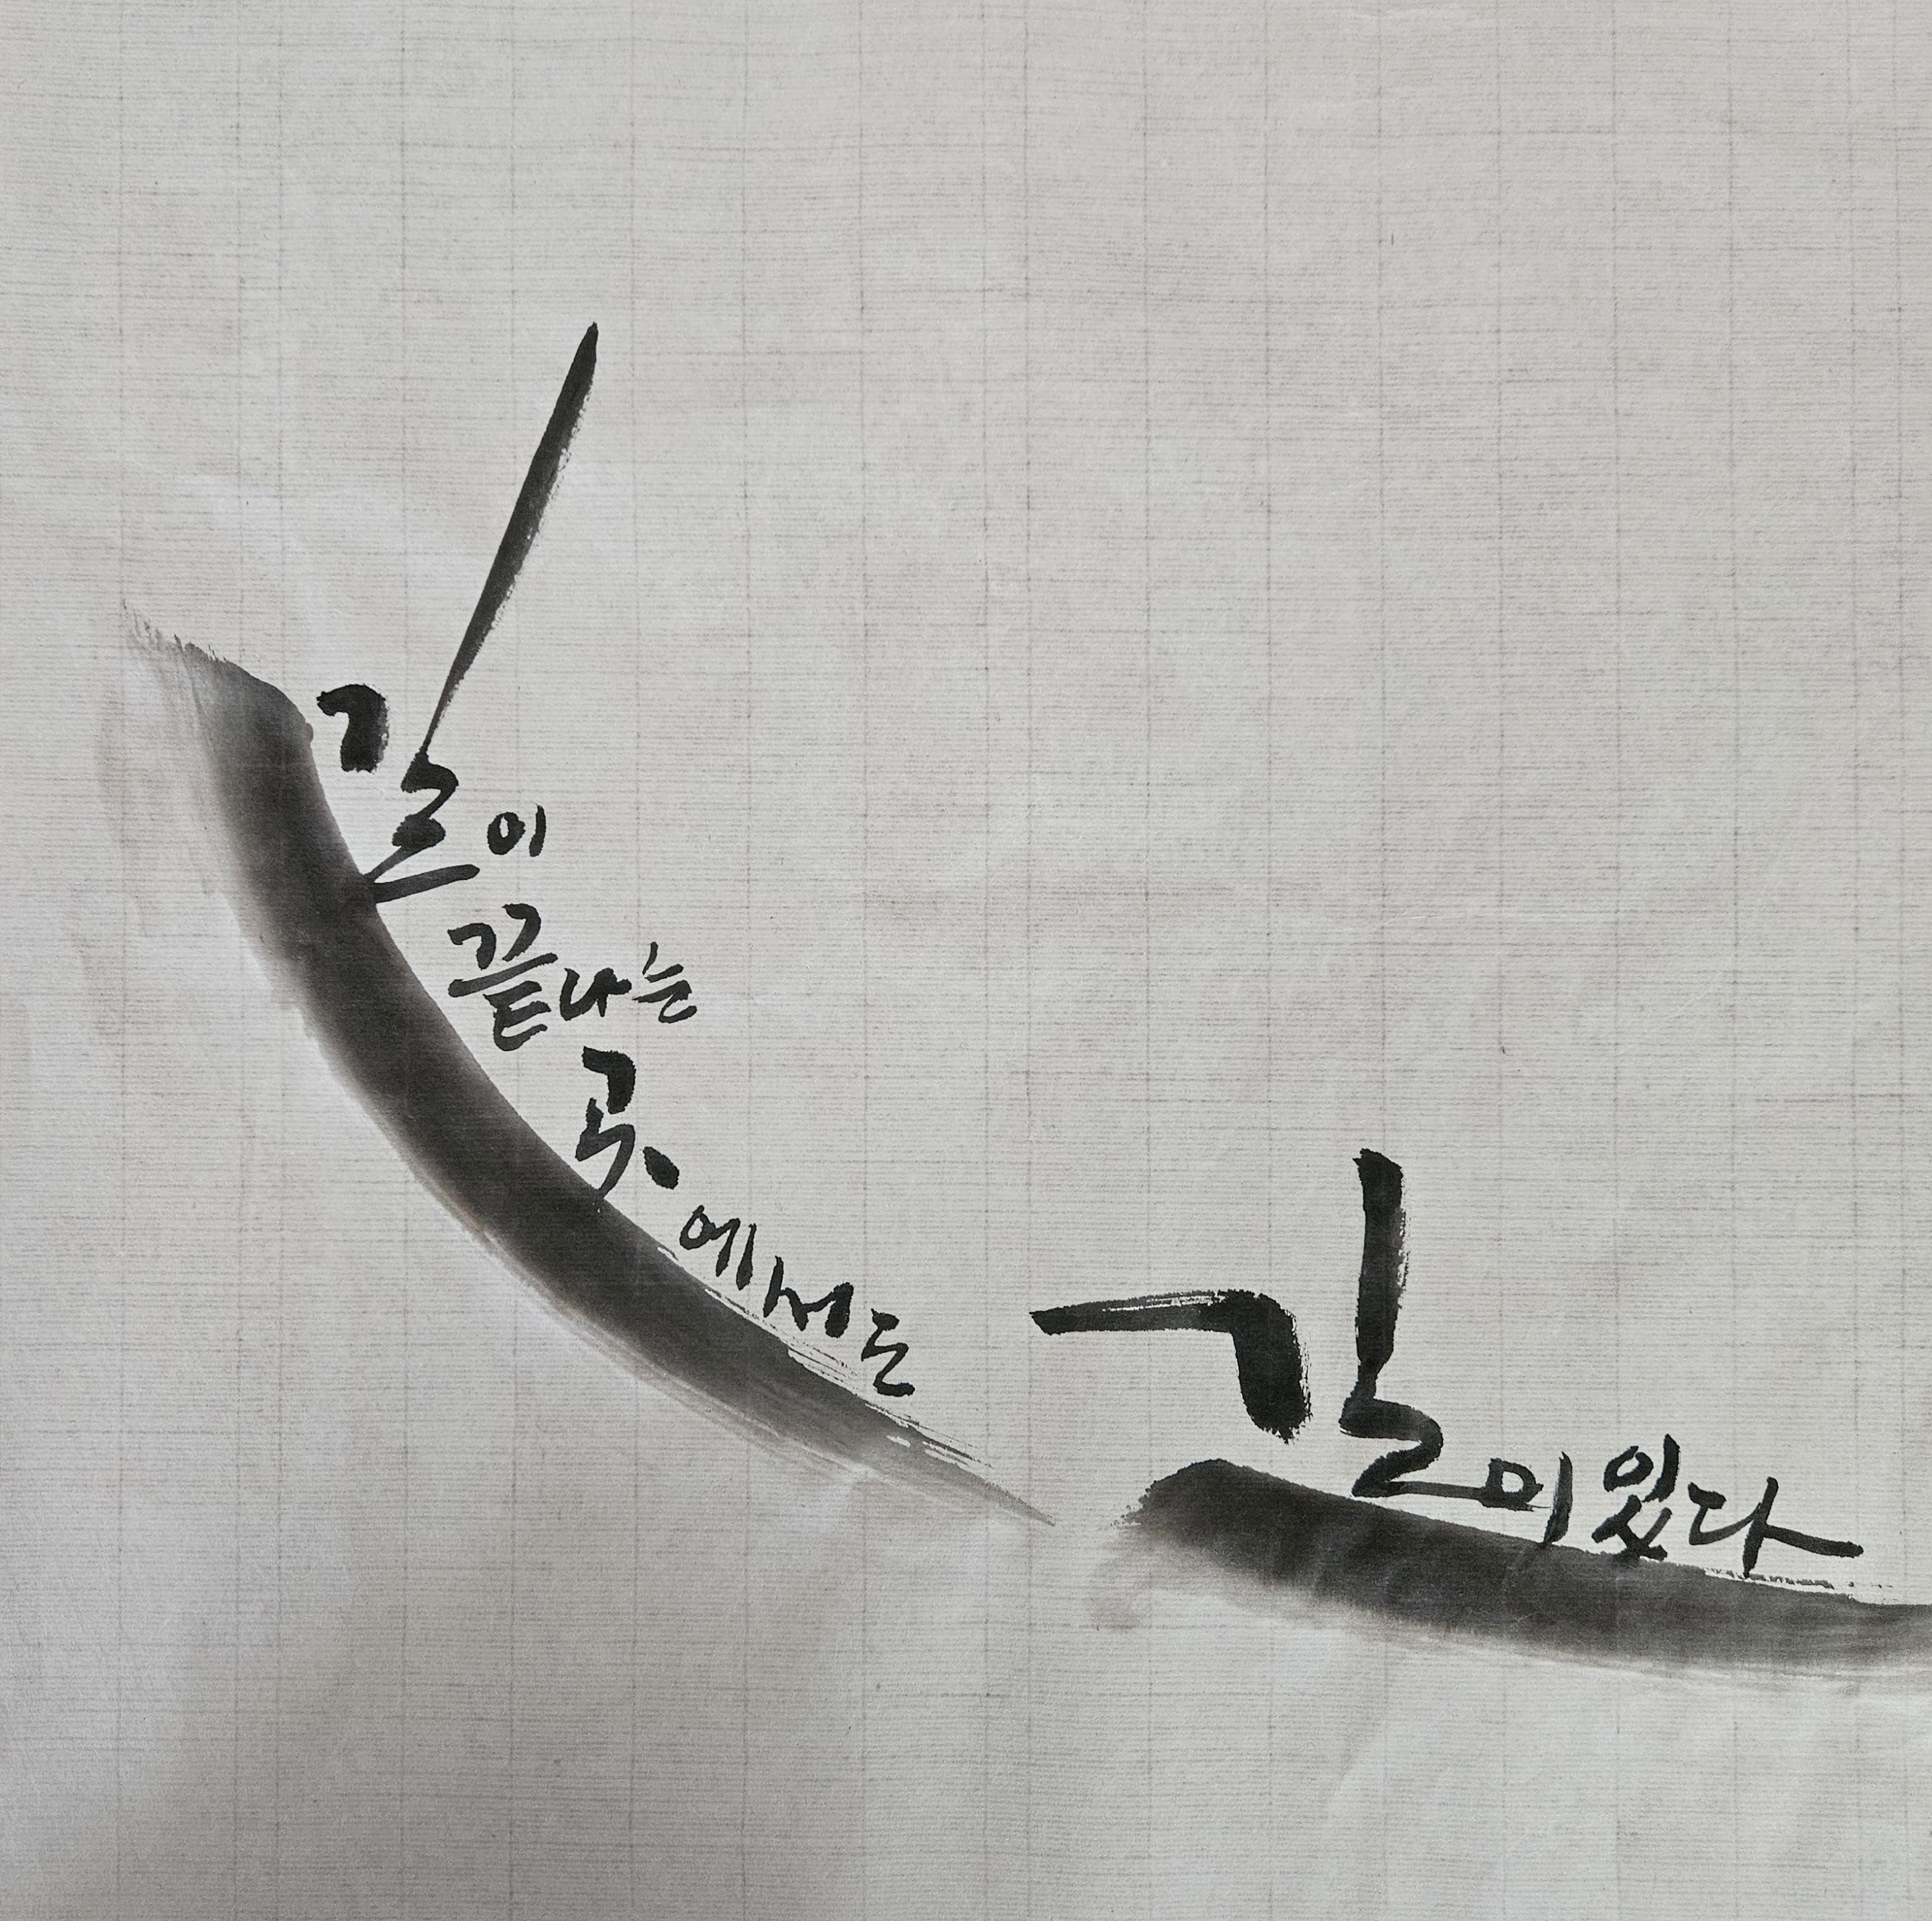 길이
끝나는
곳에서도
길이 있다